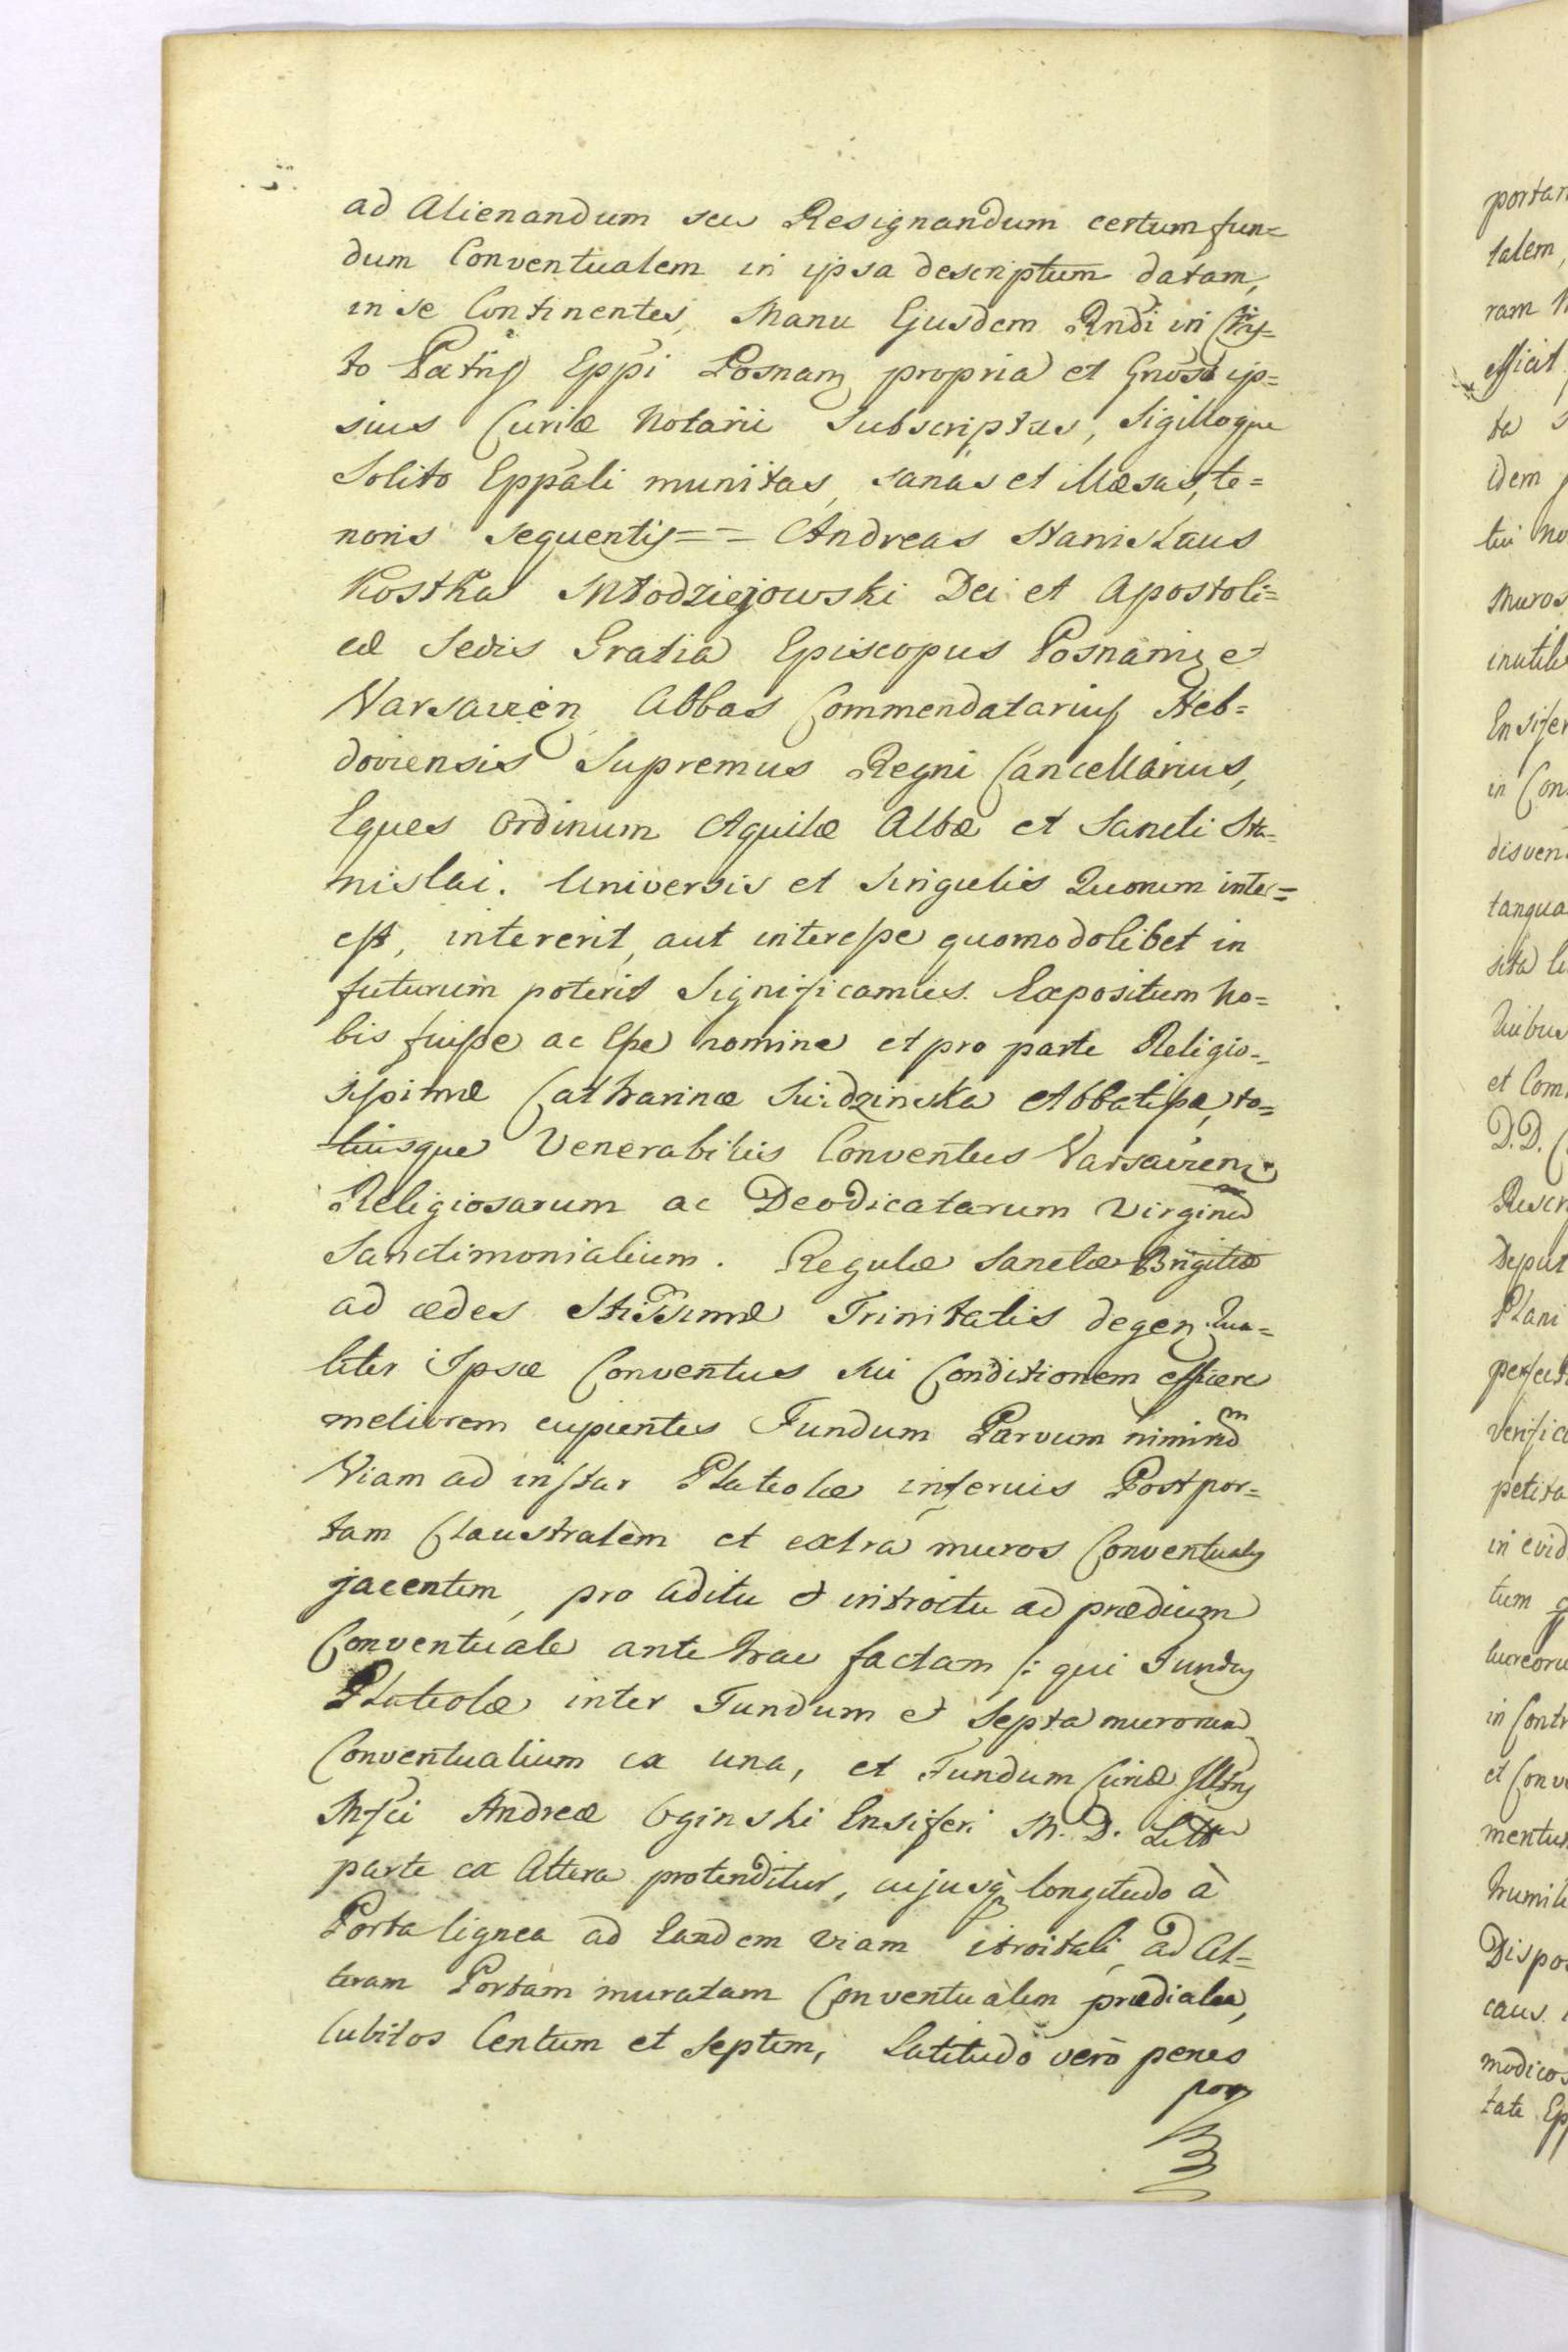 ad Alienandum seu Resignandum certum fun=
dum Conventualem in ipsa descriptum datam,
in se Continentes, Manu Ejusdem Rndi in Chris=
to Patris Eppi Posnanٖ propria et Gnosi ip=
sius Curiæ Notarii Subscriptas, Sigilloque
Solito Eppali munitas, sanas et illæsas, te=
noris sequentis == Andreas Stanislaus
Kostka Młodziejowski Dei et Apostoli=
cæ Sedis Gratia Episcopus Posnanien et
Varsavien Abbas Commendatarius Heb=
doviensis Supremus Regni Cancellarius,
Eques Ordinum Aquilæ Albæ et Sancti Sta=
nislai. Universis et Singulis Quorum inter=
est, intererit, aut interesse quomodolibet in
futurum poterit Significamus. Expositum no=
bis fuisse ac Esse nomine et pro parte Religio=
sissimæ Catharinæ Swidzinska Abbatissæ, to=
tiusque Venerabilis Conventus Varsavien
Religiosarum ac Deodicatarum Virginum
Sanctimonialium. Regulæ Sanctæ Brigittæ
ad ædes SStissimæ Trinitatis degen. Qua=
liter Ipsæ Conventus sui Conditionem efficere
meliorem cupientes Fundum Parvum nimirum
Viam ad instar Plateolæ inservis Post por=
tam Claustralem et extra muros Conventuales
jacentem, pro aditu et introitu ad prædium
Conventuale ante hac factam /: qui Fundus
Plateolæ inter Fundum et Septa murorum
Conventualium ex una, et Fundum Curiæ Illtris
Mfci Andreæ Oginski Ensiferi M. D. Litt
parte ex Altera protenditur, cujusq longitudo à
Porta lignea ad Eandem viam itroitali, ad Al=
teram Portam muratam Conventualem prædialem,
Cubitos Centum et Septem, Latitudo verò penes
por
portam
talem,
ram
efficit
ta
idem
tui
Muros
inutile
Ensifer
in Con
disven
tanqua
sita
et Com
D. D.
Rescr
Deput
Plani
perfect
verific
petita
in evid
tum
in Contr
et Conv
mentu
humili
Dispo
caus.
modico
tate Ep